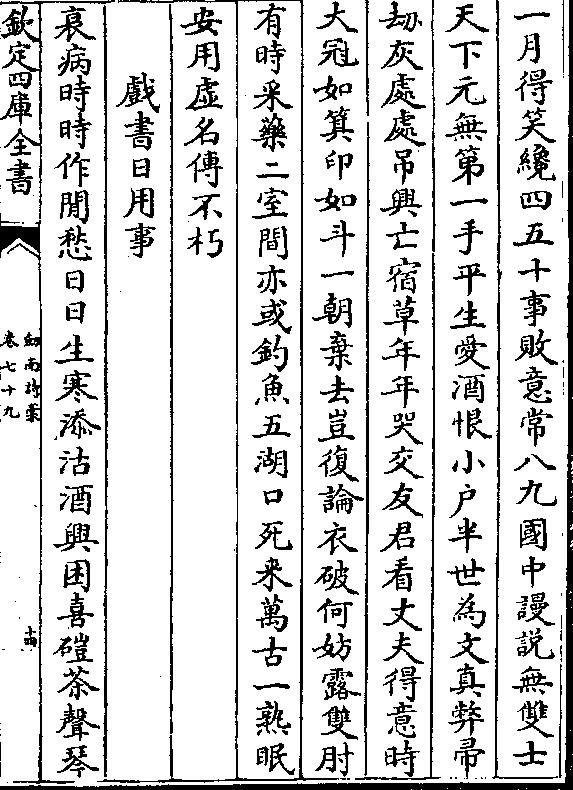 一月得笑纔四五十事敗意常八九國中謾説無雙士
天下元無第一手平生愛酒恨小户半世為文真弊帚
刼灰處處吊興亡宿草年年哭交友君看丈夫得意時
大冠如箕印如斗一朝棄去豈復論衣破何妨露雙肘
有時采藥二室間亦或釣魚五湖口死来萬古一熟眠
安用虚名傳不朽
戲書日用事
衰病時時作閒愁日日生寒添沽酒興困喜磑茶聲琴
欽定四庫全書
劒南詩藁
卷七十九
十四